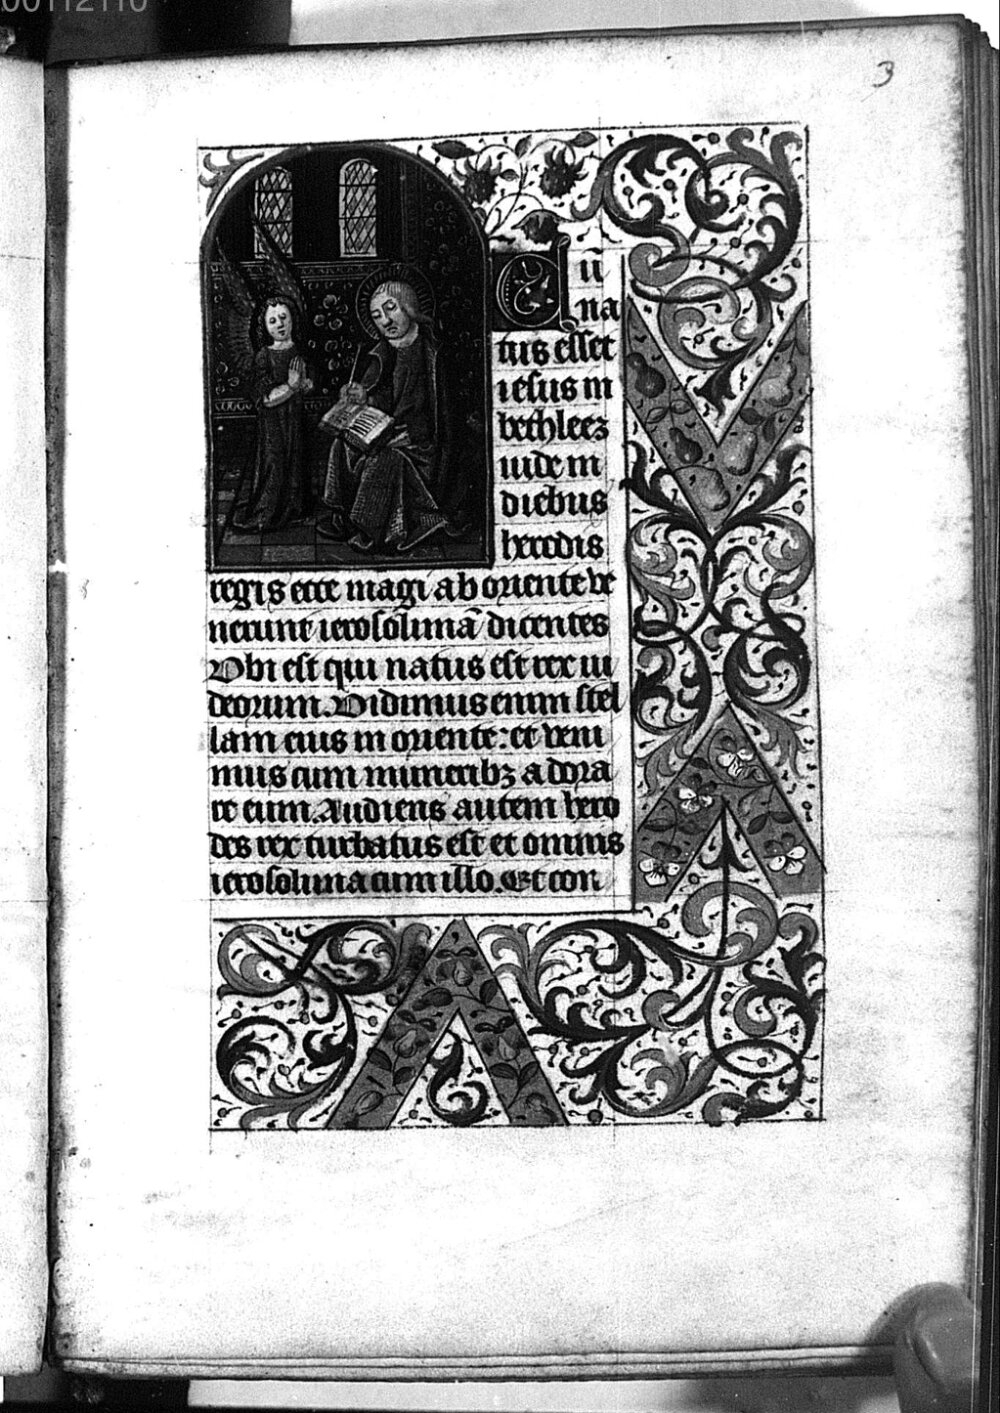 00112110
3
Cū
na
tus esset
iesus in
bethleeʒ
iude in
diebus
herodis
regis ecce magi ab oriente ve
nerunt ierosolimā dicentes
Vbi est qui natus est rex iu
deorum. Vidimus enim stel
lam eius in oriente: et veni
mus cum muneribʒ adora
re eum. Audiens autem hero
des rex turbatus est et omnis
ierosolima cum illo. Et con